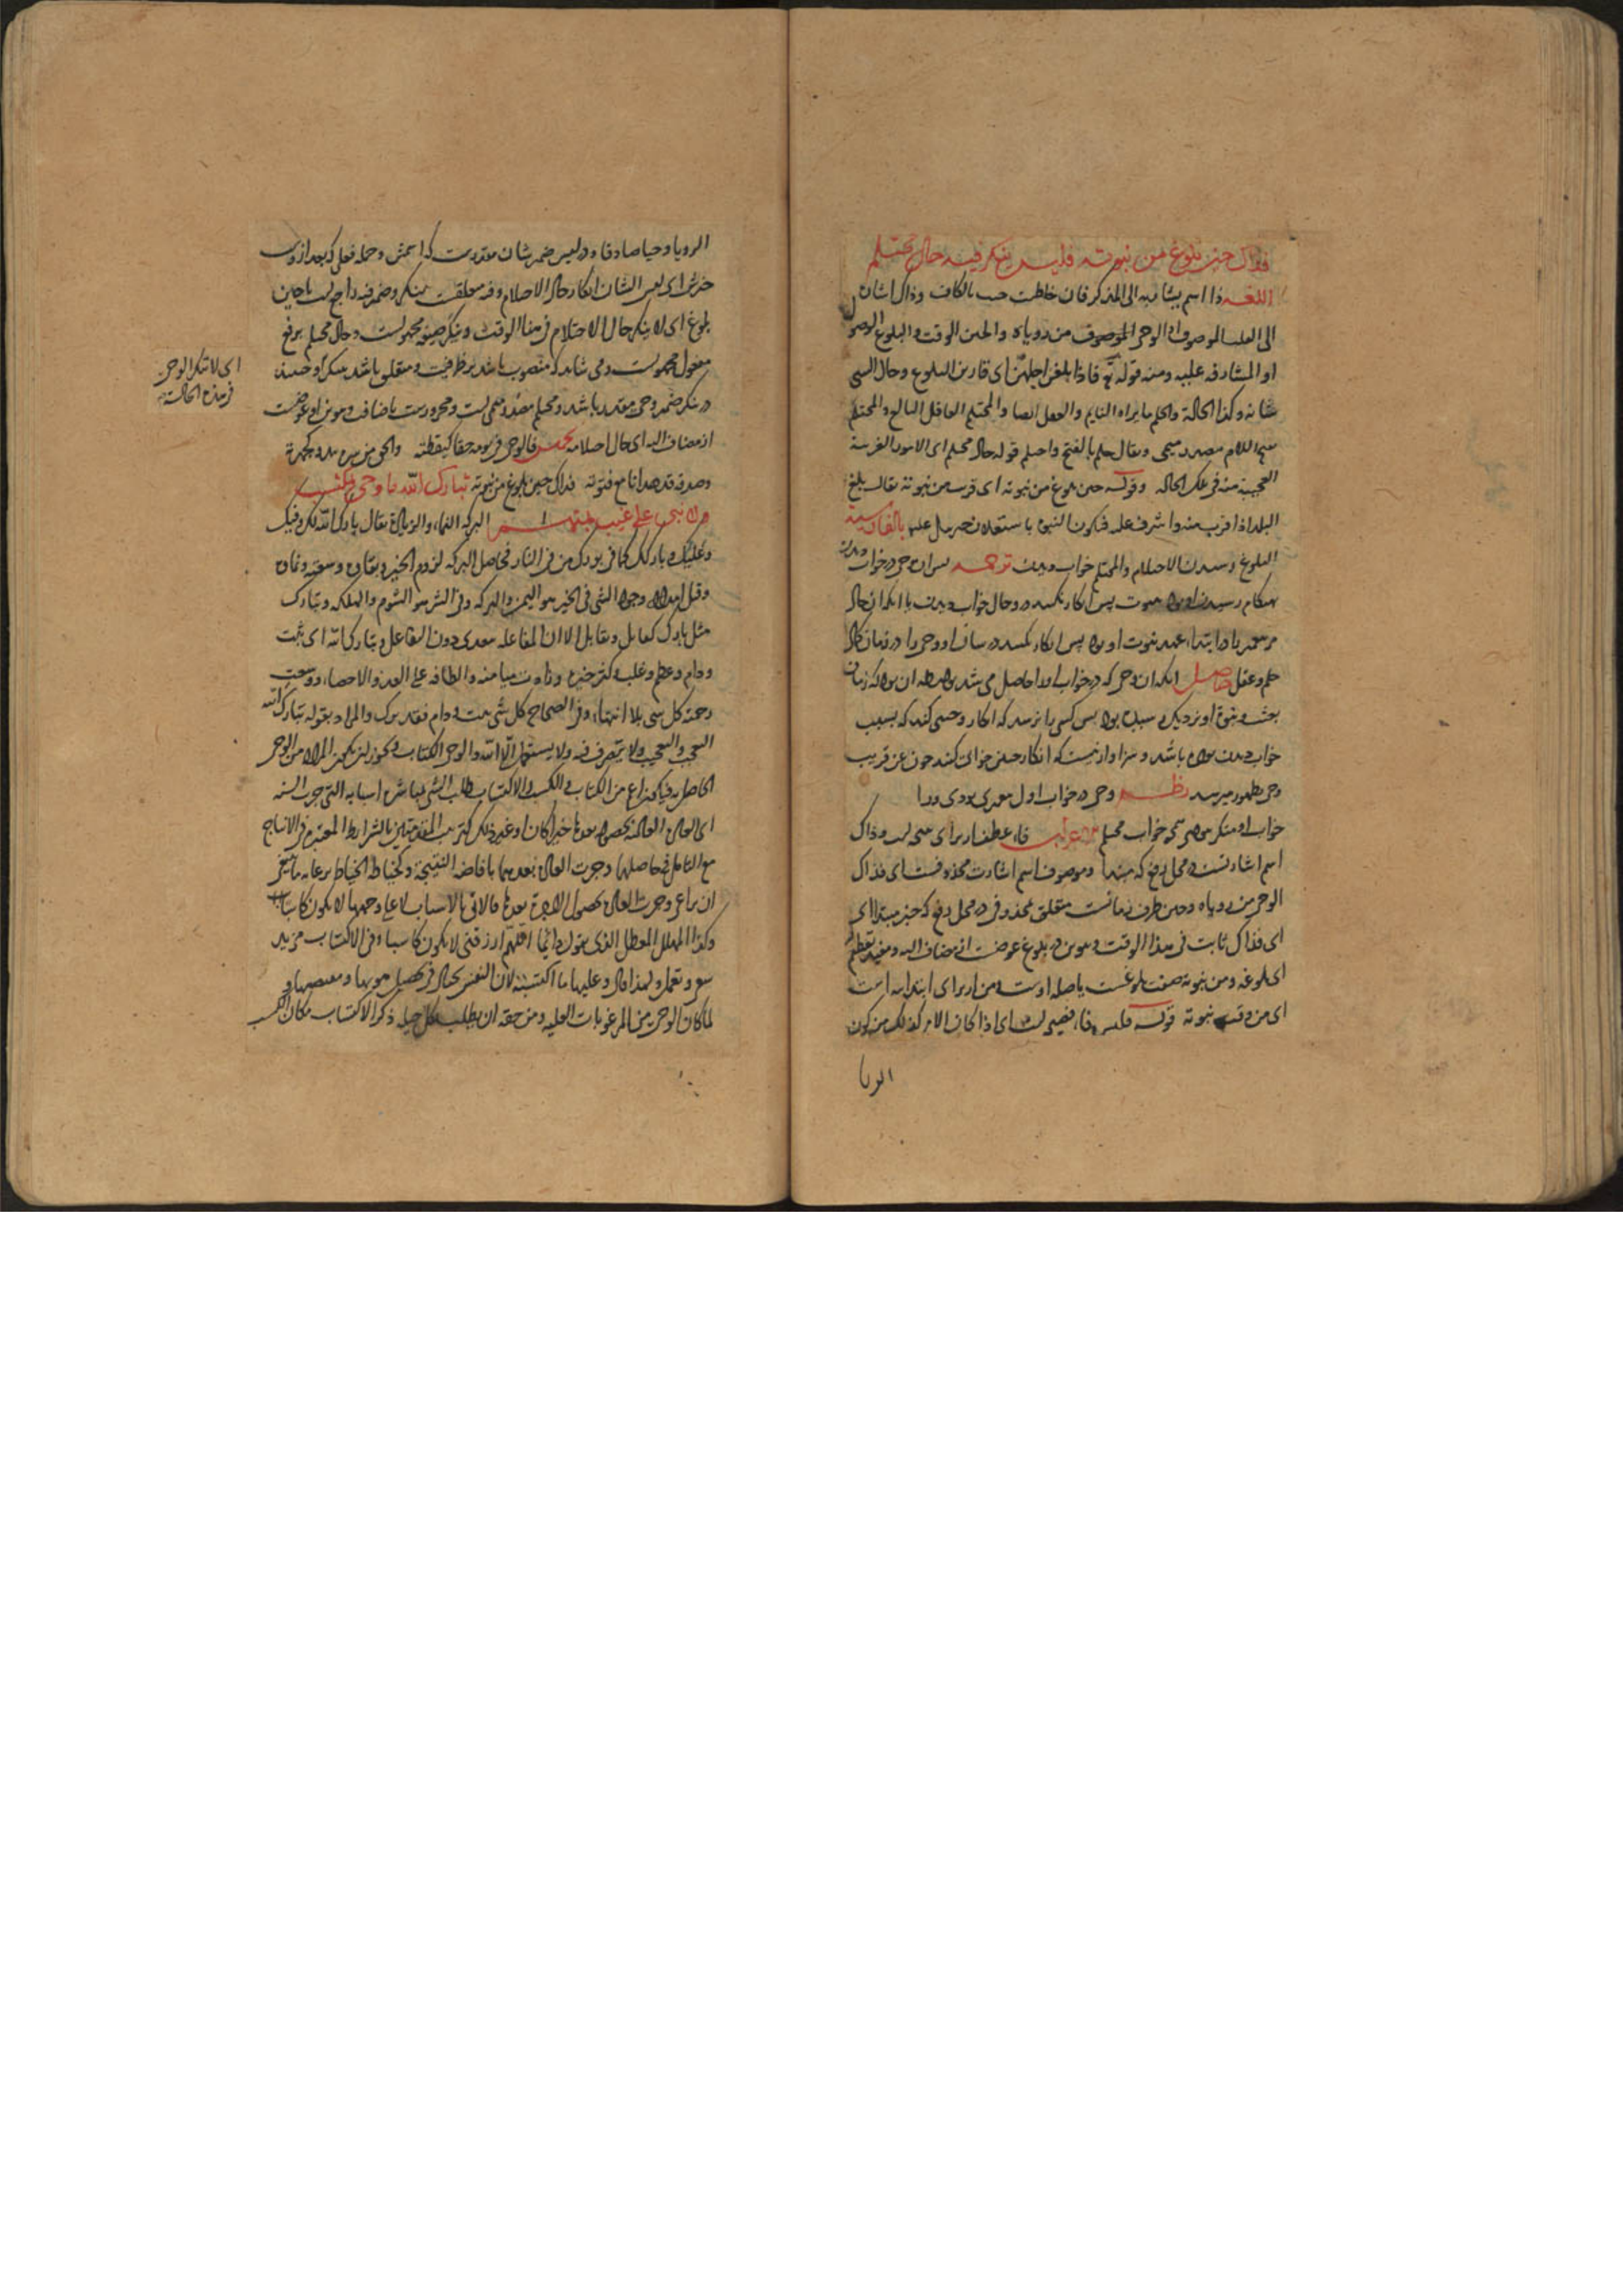 فذاك حين بلوغ من نبوته فليس ينكر فيه حال محتلم
اللغة ذا اسم يشار به الى المذكر فان خاطبت جئت بالكاف وذاك اشارة
الى القلب الموصوف او الوحى الموصوف من رؤياه والحين الوقت والبلوغ الوصول
او المشارفة عليه ومنه قوله تع فاذا بلغن اجلهن اى قاربن البلوغ وحال الشى
شانه وكذا الحالة والحلم ما يراه النايم والعقل ايضا والمحتلم العاقل البالغ والمحتلم
بفتح اللام مصدر ميمى ويقال حلم بالفتح واحتلم قوله حال محتلم اى الامور الغريبة
العجيبة منه فى تلك الحالة وقوله حين بلوغ من نبوته اى قرب من نبوته يقال بلغ
البلد اذا قرب منه واشرف عليه فيكون النبى باستعداد جبريل عليه بالفارسية
البلوغ رسيدن الاحتلام والمحتلم خواب ديدن ترجمه پس آن وحى در خواب ديدن
هنكام رسيدن او بود نبوت پس انكار نكنند در وحال خواب ديدن با آنكه آن حال
مر محمد را در ابتداء عهد نبوت او بود پس انكار نكنند در شان او وحى را در زمان كمال
حلم وعقل حاصل آنكه آن وحى كه در خواب او را حاصل مى شد بواسطه آن بود كه زمان
بعثت ونبوة او نزديك رسيده بود پس كسى را نرسد كه انكار وحيى كند كه بسبب
خواب ديدن بوده باشد وسزاوار نيست كه انكار چنين خوابى كنند چون عن قريب
وحى بظهور ميرسد نظم وحى در خواب اول بودى ورا
خواب او منكر مشو همچو خواب محتلم اعراب فاء عطف از براى است وذاك
اسم اشارتست در محل رفع كه مبتدا وموصوف اسم اشارت محذوفست اى فذاك
الوحى من رؤياه وحين ظرف زمانست متعلق بمحذوف در محل رفع كه خبر مبتدا اى
اى فذاك ثابت فى هذا الوقت وتنوين در بلوغ عوضست از مضاف اليه ومفيد تعظيم
اى بلوغه ومن نبوته صفت بلوغست يا صله اوست ومن از براى ابتداء است
اى من وقت نبوته قوله فليس فاء فصيحى است اى اذا كان الامر كذلك من كون
الرويا
الرويا وحيا صادقا ودر ليس ضمير شان مقدرست كه اسمش وجمله فعلى كه بعد ازوست
خبرش اى ليس الشان انكار حال الاحتلام وفيه متعلقست بينكر وضمير فيه راجع است با حين
بلوغ اى لا ينكر حال الاحتلام فى هذا الوقت وينكر صيغه مجهولست وحال محتلم برفع
مفعول مجهولست ومى شايد كه منصوب باشد بر ظرفيت ومتعلق باشد بينكر او حينئذ
در ينكر ضمير وحى مقدر باشد ومحتلم مصدر ميمى است ومجرورست باضافت وتنوين او عوضست
از مضاف اليه اى حال احتلامه تخميس فالوحى فى نومه حقا كيقظته
وصدقه قد هدانا مع فتوته فذاك حين بلوغ من نبوته تبارك الله ما وحى بمكتسب
ولا نبى على غيب بمتهم البركة النماء والزيادة يقال بارك الله لك وفيك
وعليك وباركك كما فى بورك من فى النار فحاصل البركة لزوم الخير وبقاؤه وسعته ونماؤه
وقيل وجود الشى فى الخير هو اليمن والبركة وفى الشر هو الشوم والهلكة وتبارك
مثل بارك كقاتل وتقاتل الا ان المفاعلة معدى دون التفاعل وتبارك الله اى ثبت
ودام وعظم وغلب وكثر خيره وزادت ميامنه والطافه على العد والاحصاء ووسعت
رحمته كل شى بلا انتهاء وفى الصحاح كل شى ثبت ودام فقد برك والمراد بقوله تبارك الله
التعجب والتعجيب ولا يتصرف فيه ولا يستعمل الا لله والوحى الكتاب ويجوز ان يكون المراد من الوحى
الحاصل به فيكون اعم من الكتاب والكسب والاكتساب طلب الشى بمباشرة اسبابه التى جرت السنة
مع التامل فى حاصلهما وجرت العادة بعدهما بافاضة النتيجة وكخياط الخياط برعاية ما ينبغى
ان يراعى وجرت العادة بحصول بعدها فالاتى بالاسباب لا على وجهها لا يكون كاسبا
وكذا المهمل المعطل الذى يقول دائما اللهم ارزقنى لا يكون كاسبا وفى الاكتساب مزيد
سعى وتعمل ولهذا قال وعليها ما اكتسبت لان النفس
لما كان الوحى من المرغوبات العليه ومن حقه ان يطلب بكل حيلة ذكر الاكتساب مكان الكسب
اى لا تنكر الوحى
فى هذه الحالة